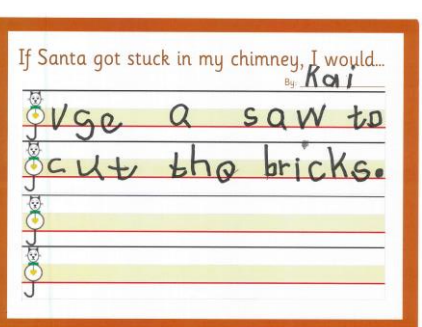 If Santa got stuck in my chimney, I would...
By: Kai
Use a saw to
cut the bricks.